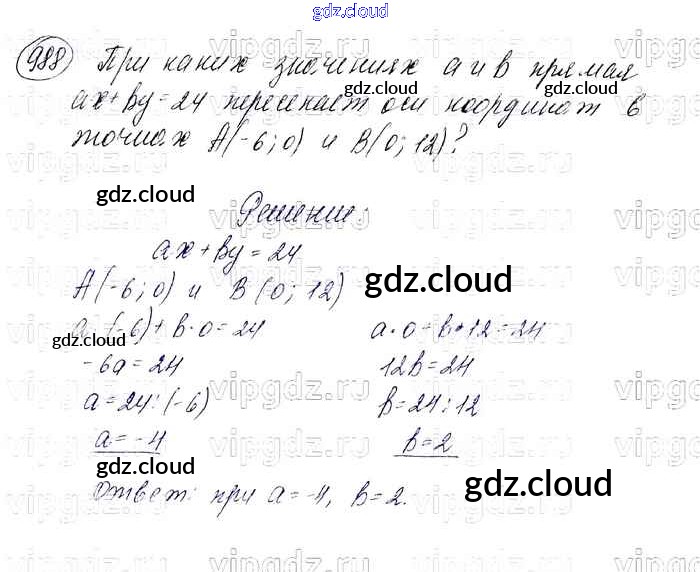 gdz.cloud
988 При каких значениях a и b прямая
gdz.cloud gdz.cloud
ax+by=24 пересекает оси координат в
точках A(-6;0) и B(0;12)?
gdz.cloud
Решение:
ax+by=24
A(-6;0) и B(0;12) gdz.cloud
a·(-6)+b·0=24 a·0+b·12=24
gdz.cloud
-6a=24 12b=24
a=24:(-6) b=24:12
a=-4 b=2
gdz.cloud gdz.cloud
Ответ: при a=-4, b=2.
vipgdz.ru vipgdz.ru vipgdz.ru